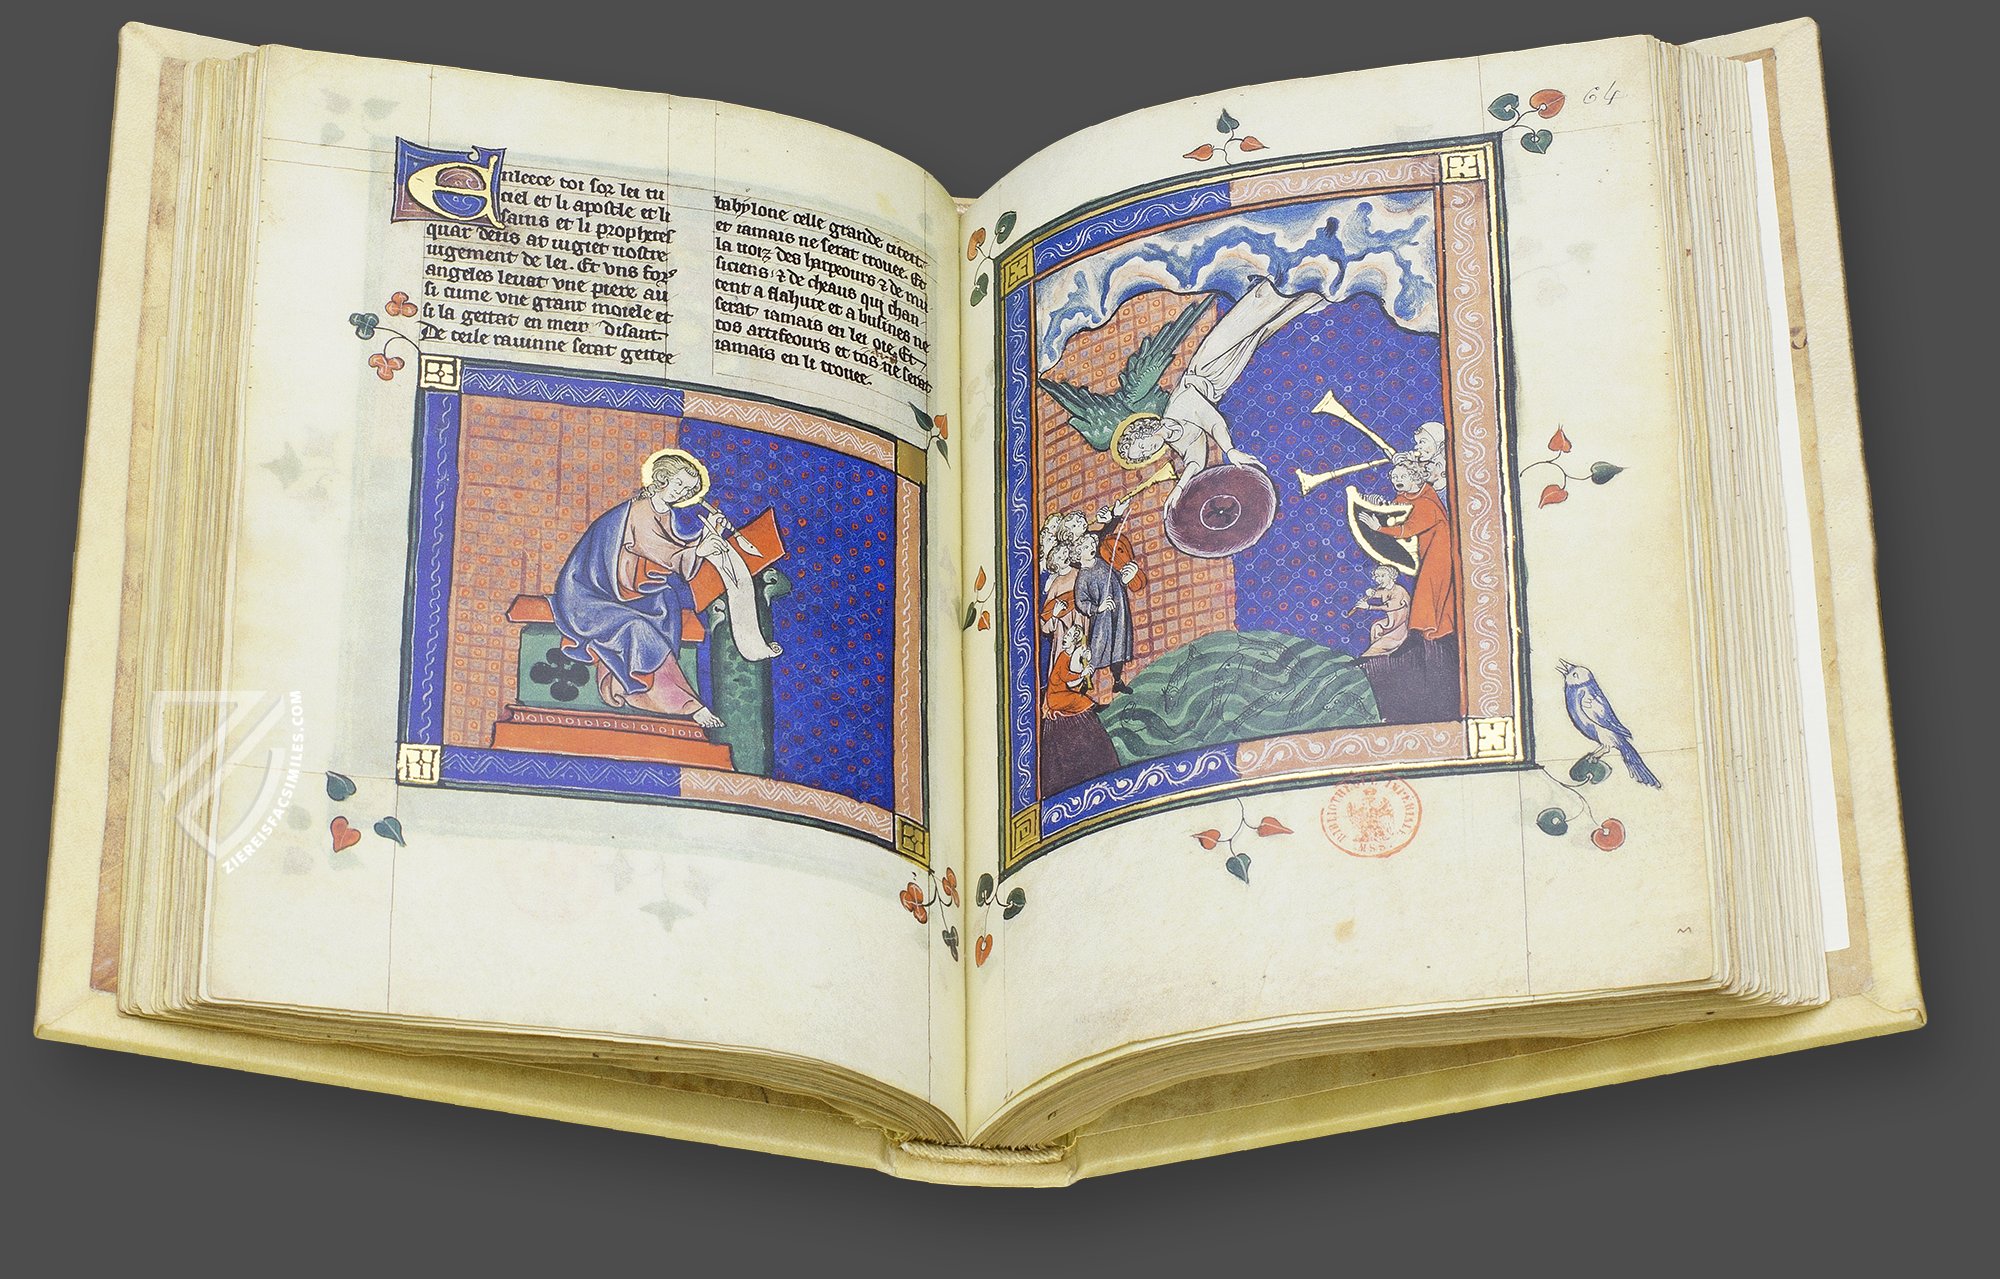 Esleece toi sor lei tu
ciel et li apostle et li
sains et li prophetes
quar deus at iugiet nostre
iugement de lei. Et vns fors
angeles leuat vne piere au
si cume vne grant moiele et
si la gettat en meir disant.
De ceile rauinne serat gettee
babylone celle grande citeit
et iamais ne serat trouee. Et
la uoiz des harpeours z de mu
siciens z de cheaus qui chan
tent a flahute et a busines ne
serat iamais en lei oie. Et
tos artifeours et tos ars ne serat
iamais en li trouee.
64
BIBLIOTHE IMPERIALE
MSS.
ZIEREISFACSIMILES.COM